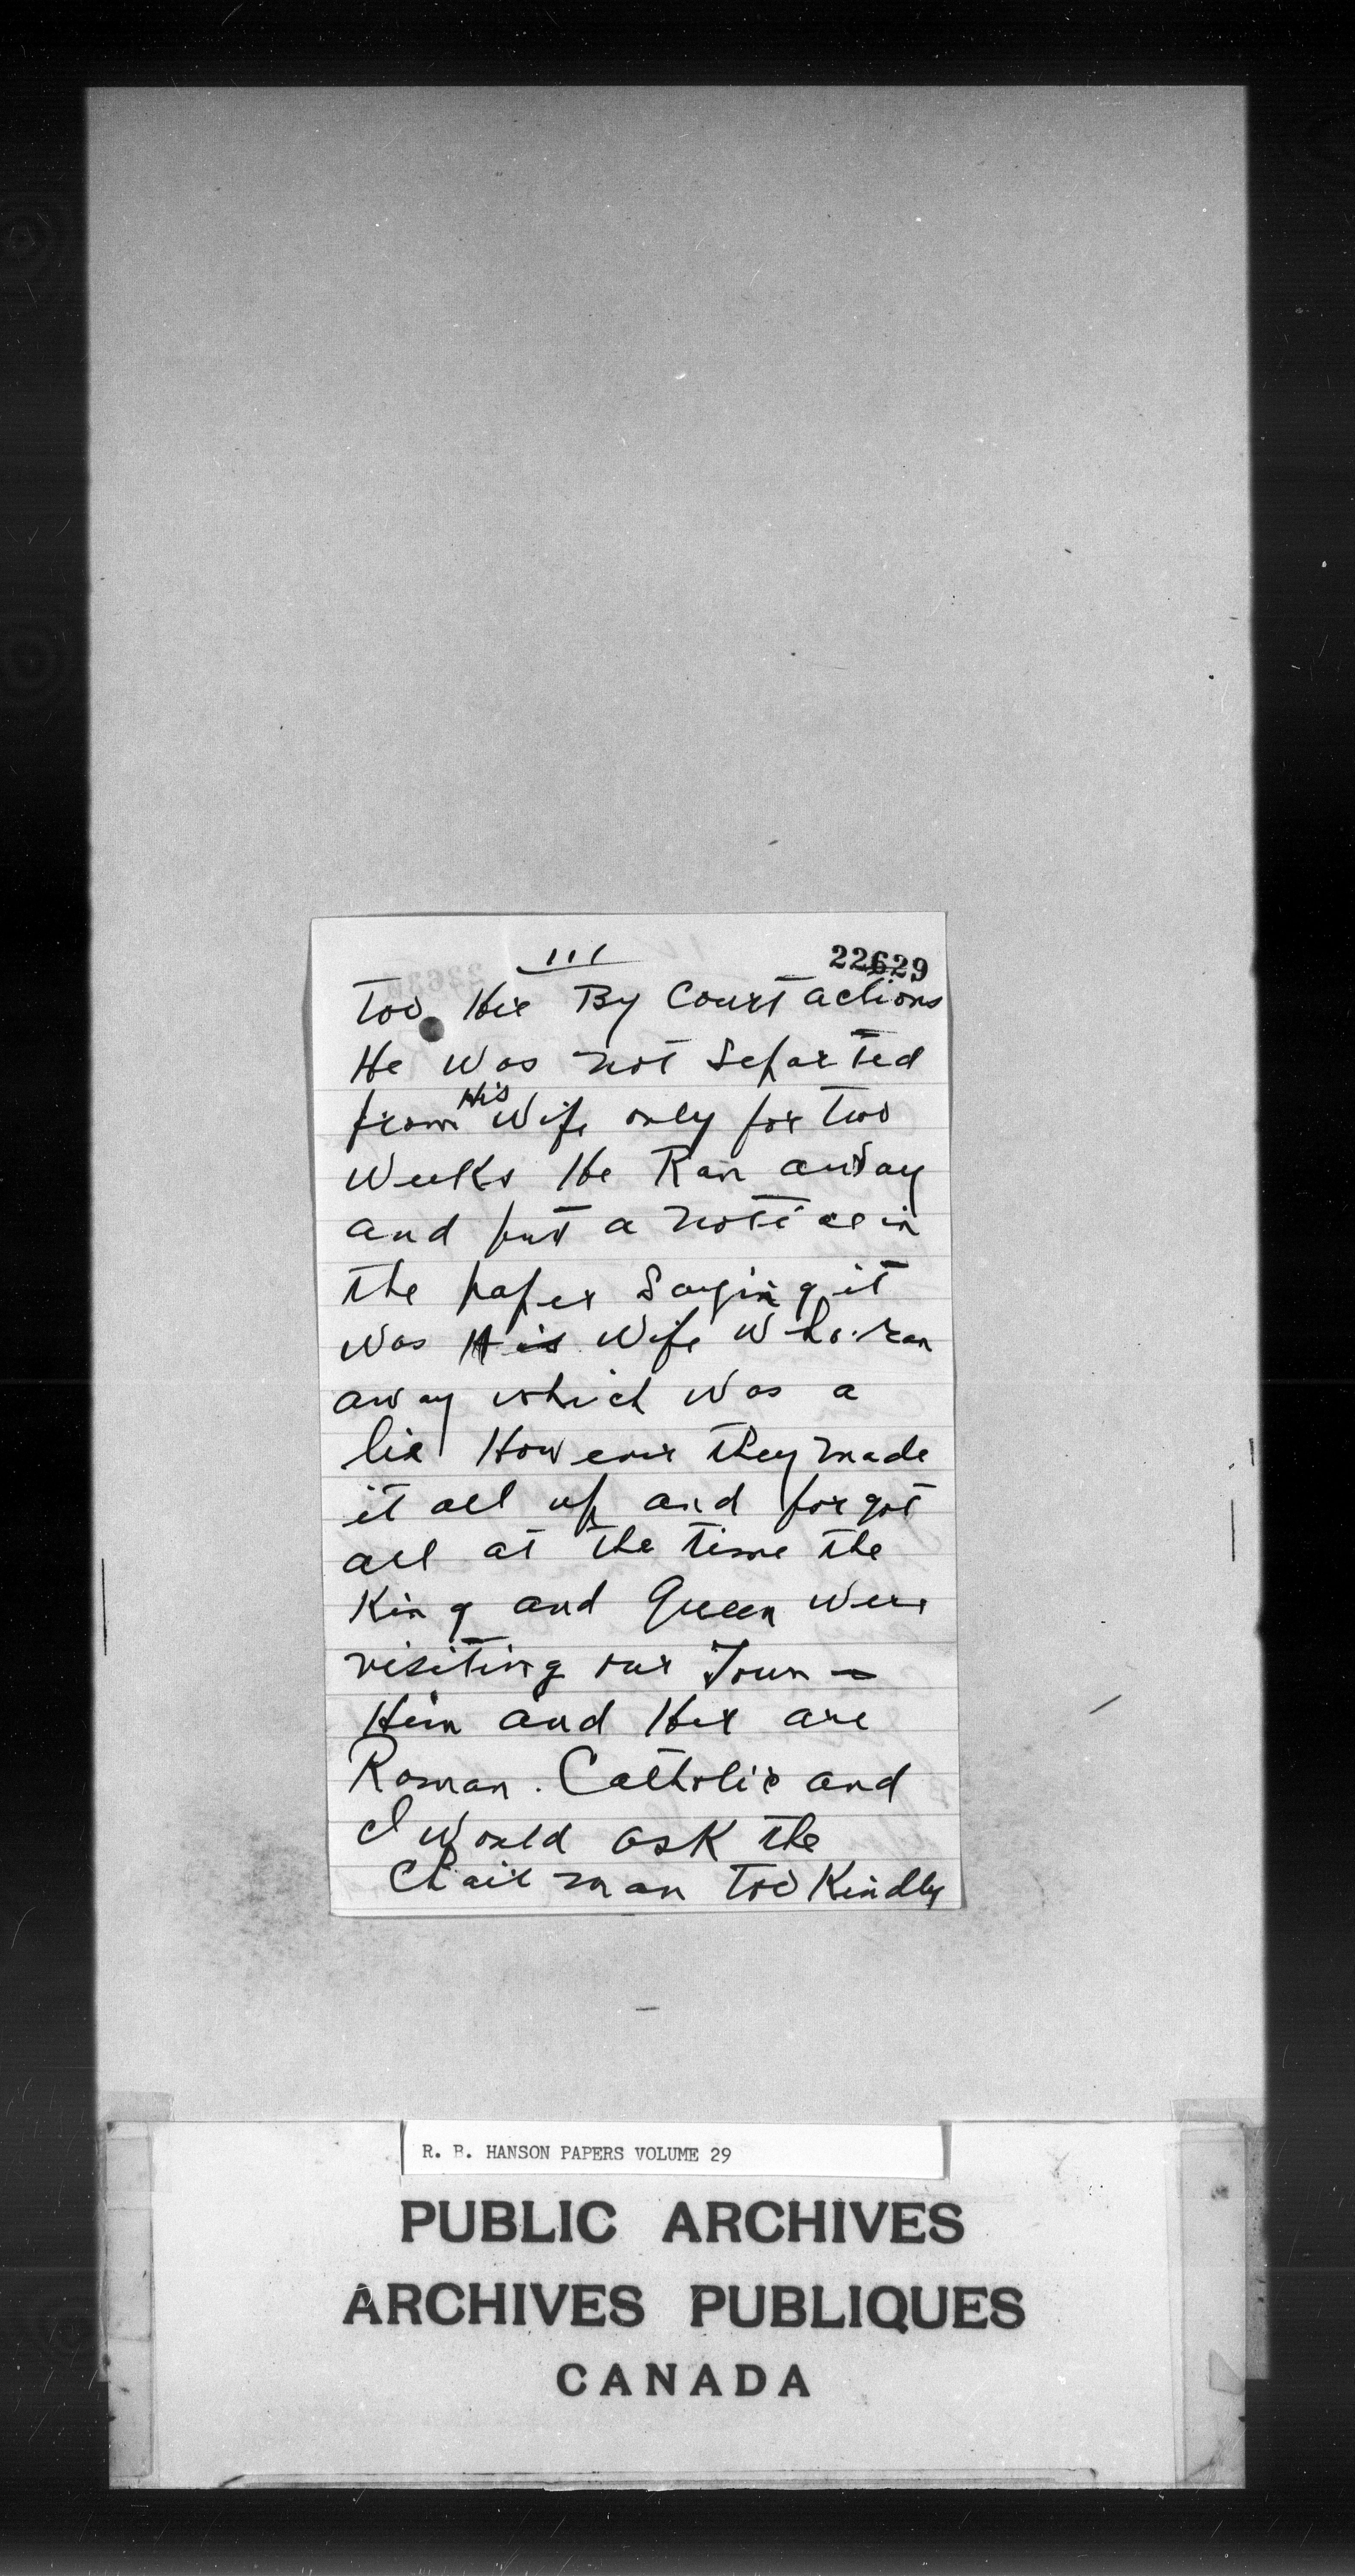 111
22629
Too Her By Court actions
He was not Separted
from His Wife only for Two
Weeks He Ran away
and put a notice in
the paper Saying it
was His Wife Who ran
away which was a
lie However they made
it all up and forgot
all at the time the
King and Queen were
visiting our Town -
Him and Her are
Roman. Catholic and
I would ask the
Chairman Too Kindly
R. B. HANSON PAPERS VOLUME 29
PUBLIC ARCHIVES
ARCHIVES PUBLIQUES
CANADA